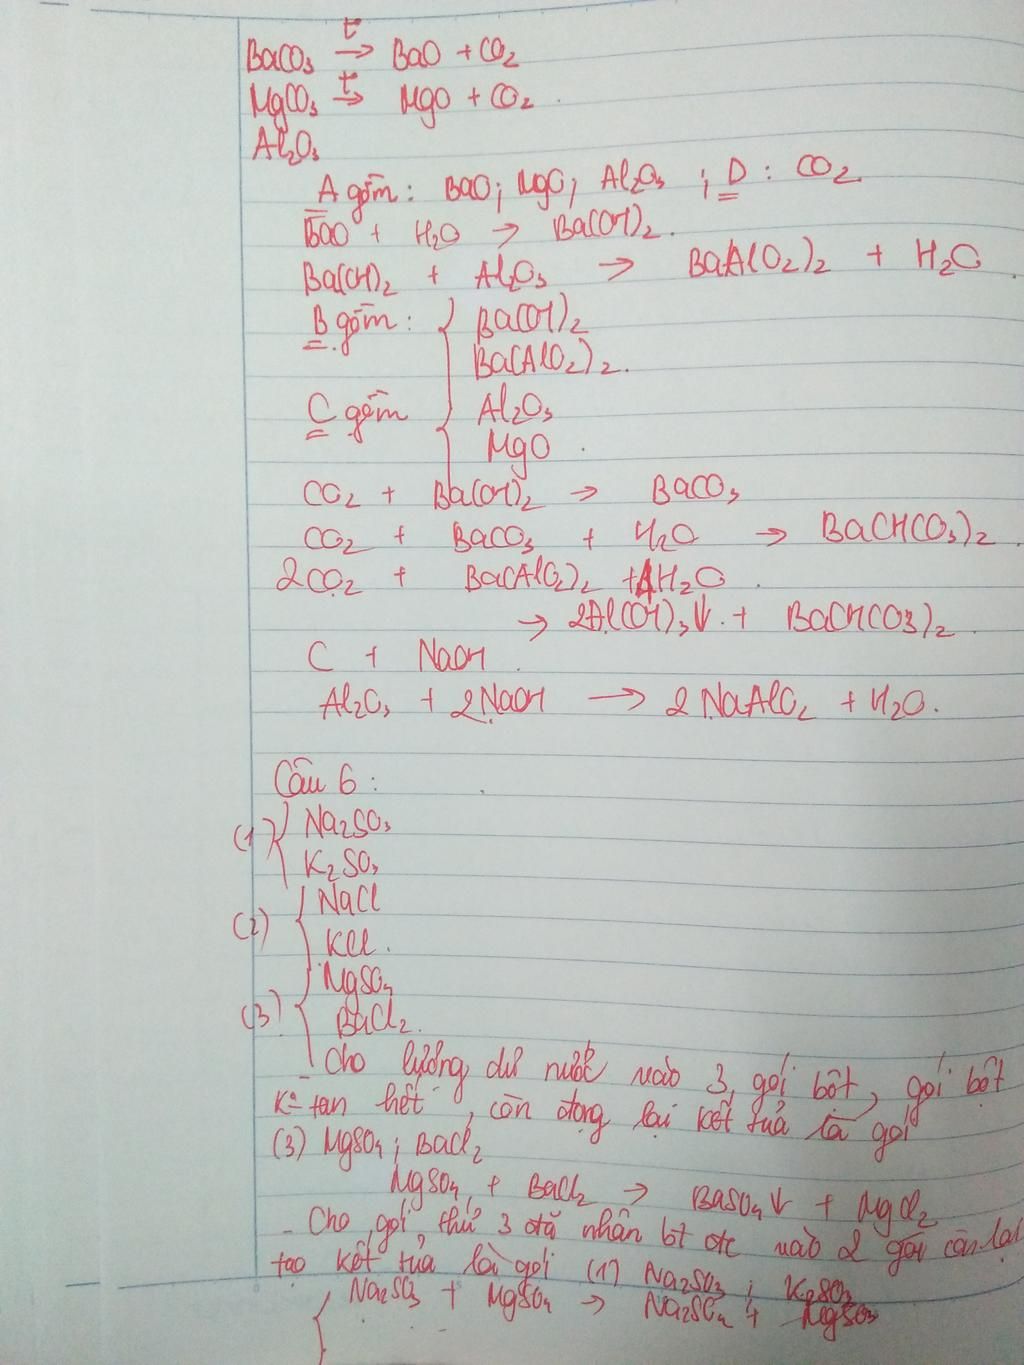 BaCO₃ →(t°) BaO + CO₂
MgCO₃ →(t°) MgO + CO₂.
Al₂O₃
A gồm: BaO; MgO; Al₂O₃ ; D : CO₂
BaO + H₂O → Ba(OH)₂.
Ba(OH)₂ + Al₂O₃ → Ba(AlO₂)₂ + H₂O
B gồm: { Ba(OH)₂
Ba(AlO₂)₂.
C gồm { Al₂O₃
MgO.
CO₂ + Ba(OH)₂ → BaCO₃
CO₂ + BaCO₃ + H₂O → Ba(HCO₃)₂
2CO₂ + Ba(AlO₂)₂ + 4H₂O.
→ 2Al(OH)₃↓ + Ba(HCO₃)₂.
C + NaOH.
Al₂O₃ + 2NaOH → 2NaAlO₂ + H₂O.
Câu 6:
(1) { Na₂SO₃
K₂SO₃
(2) { NaCl
KCl.
(3) { MgSO₄
BaCl₂.
- Cho lượng dư nước vào 3 gói bột, gói bột
K° tan hết, còn đọng lại kết tủa là gói
(3) MgSO₄; BaCl₂
MgSO₄ + BaCl₂ → BaSO₄↓ + MgCl₂
- Cho gói thứ 3 đã nhận bt đc vào 2 gói còn lại
tạo kết tủa là gói (1) Na₂SO₃; K₂SO₃
{ Na₂SO₃ + MgSO₄ → Na₂SO₄ + MgSO₃